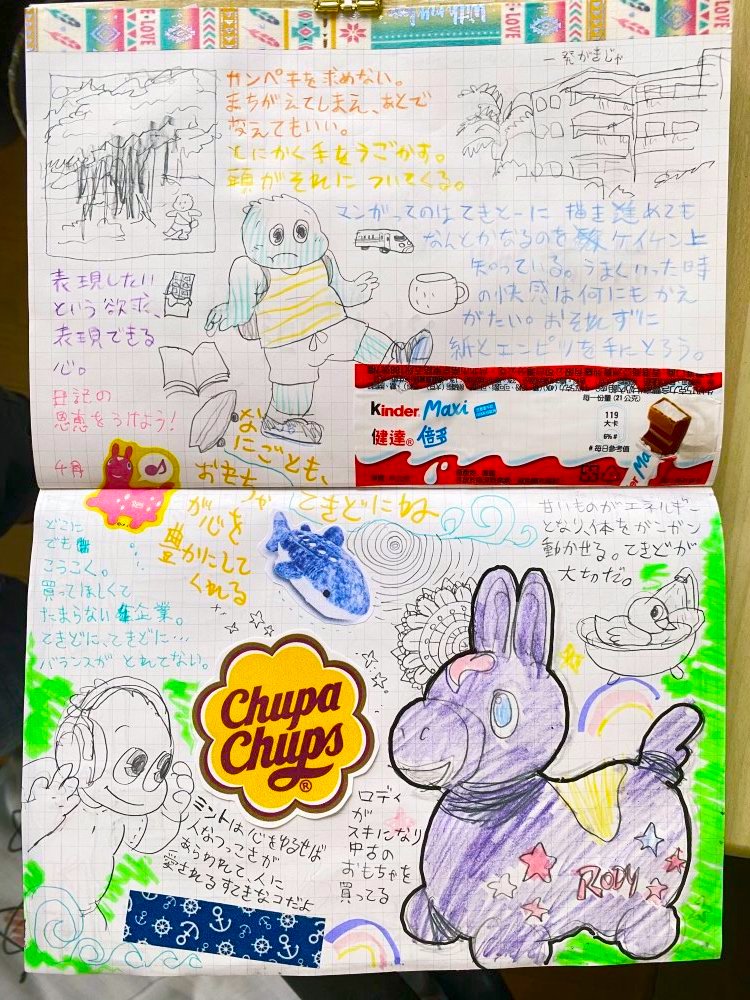 LOVE
E・LOVE
一発がきじゃ
カンペキを求めない。
まちがえてしまえ、あとで
変えてもいい。
とにかく手をうごかす。
頭がそれについてくる。
マンガってのはてきとーに描き進めても
なんとかなるのをケイケン上
知っている。うまくいった時
の快感は何にもかえ
がたい。おそれずに
紙とエンピツを手にとろう。
表現したい
という欲求、
表現できる
心。
日記の
恩恵をうけよう!
Kinder Maxi
健達® 倍多
每一份量 (21公克)
119
大卡
6%#
#每日参考值
なにごとも、
てきどにね
おもちゃ
が心を
豊かにして
くれる
どこに
でも
こうこく。
買ってほしくて
たまらない企業。
てきどに、てきどに…
バランスがとれてない。
甘いものがエネルギー
となり、体をガンガン
動かせる。てきどが
大切だ。
Chupa
Chups
®
ミントは心をゆるせば
人なつっこさが
あらわれて、人に
愛されるすてきなコだよ
ロディ
が
スキになり
中古の
おもちゃを
買ってる
RODY